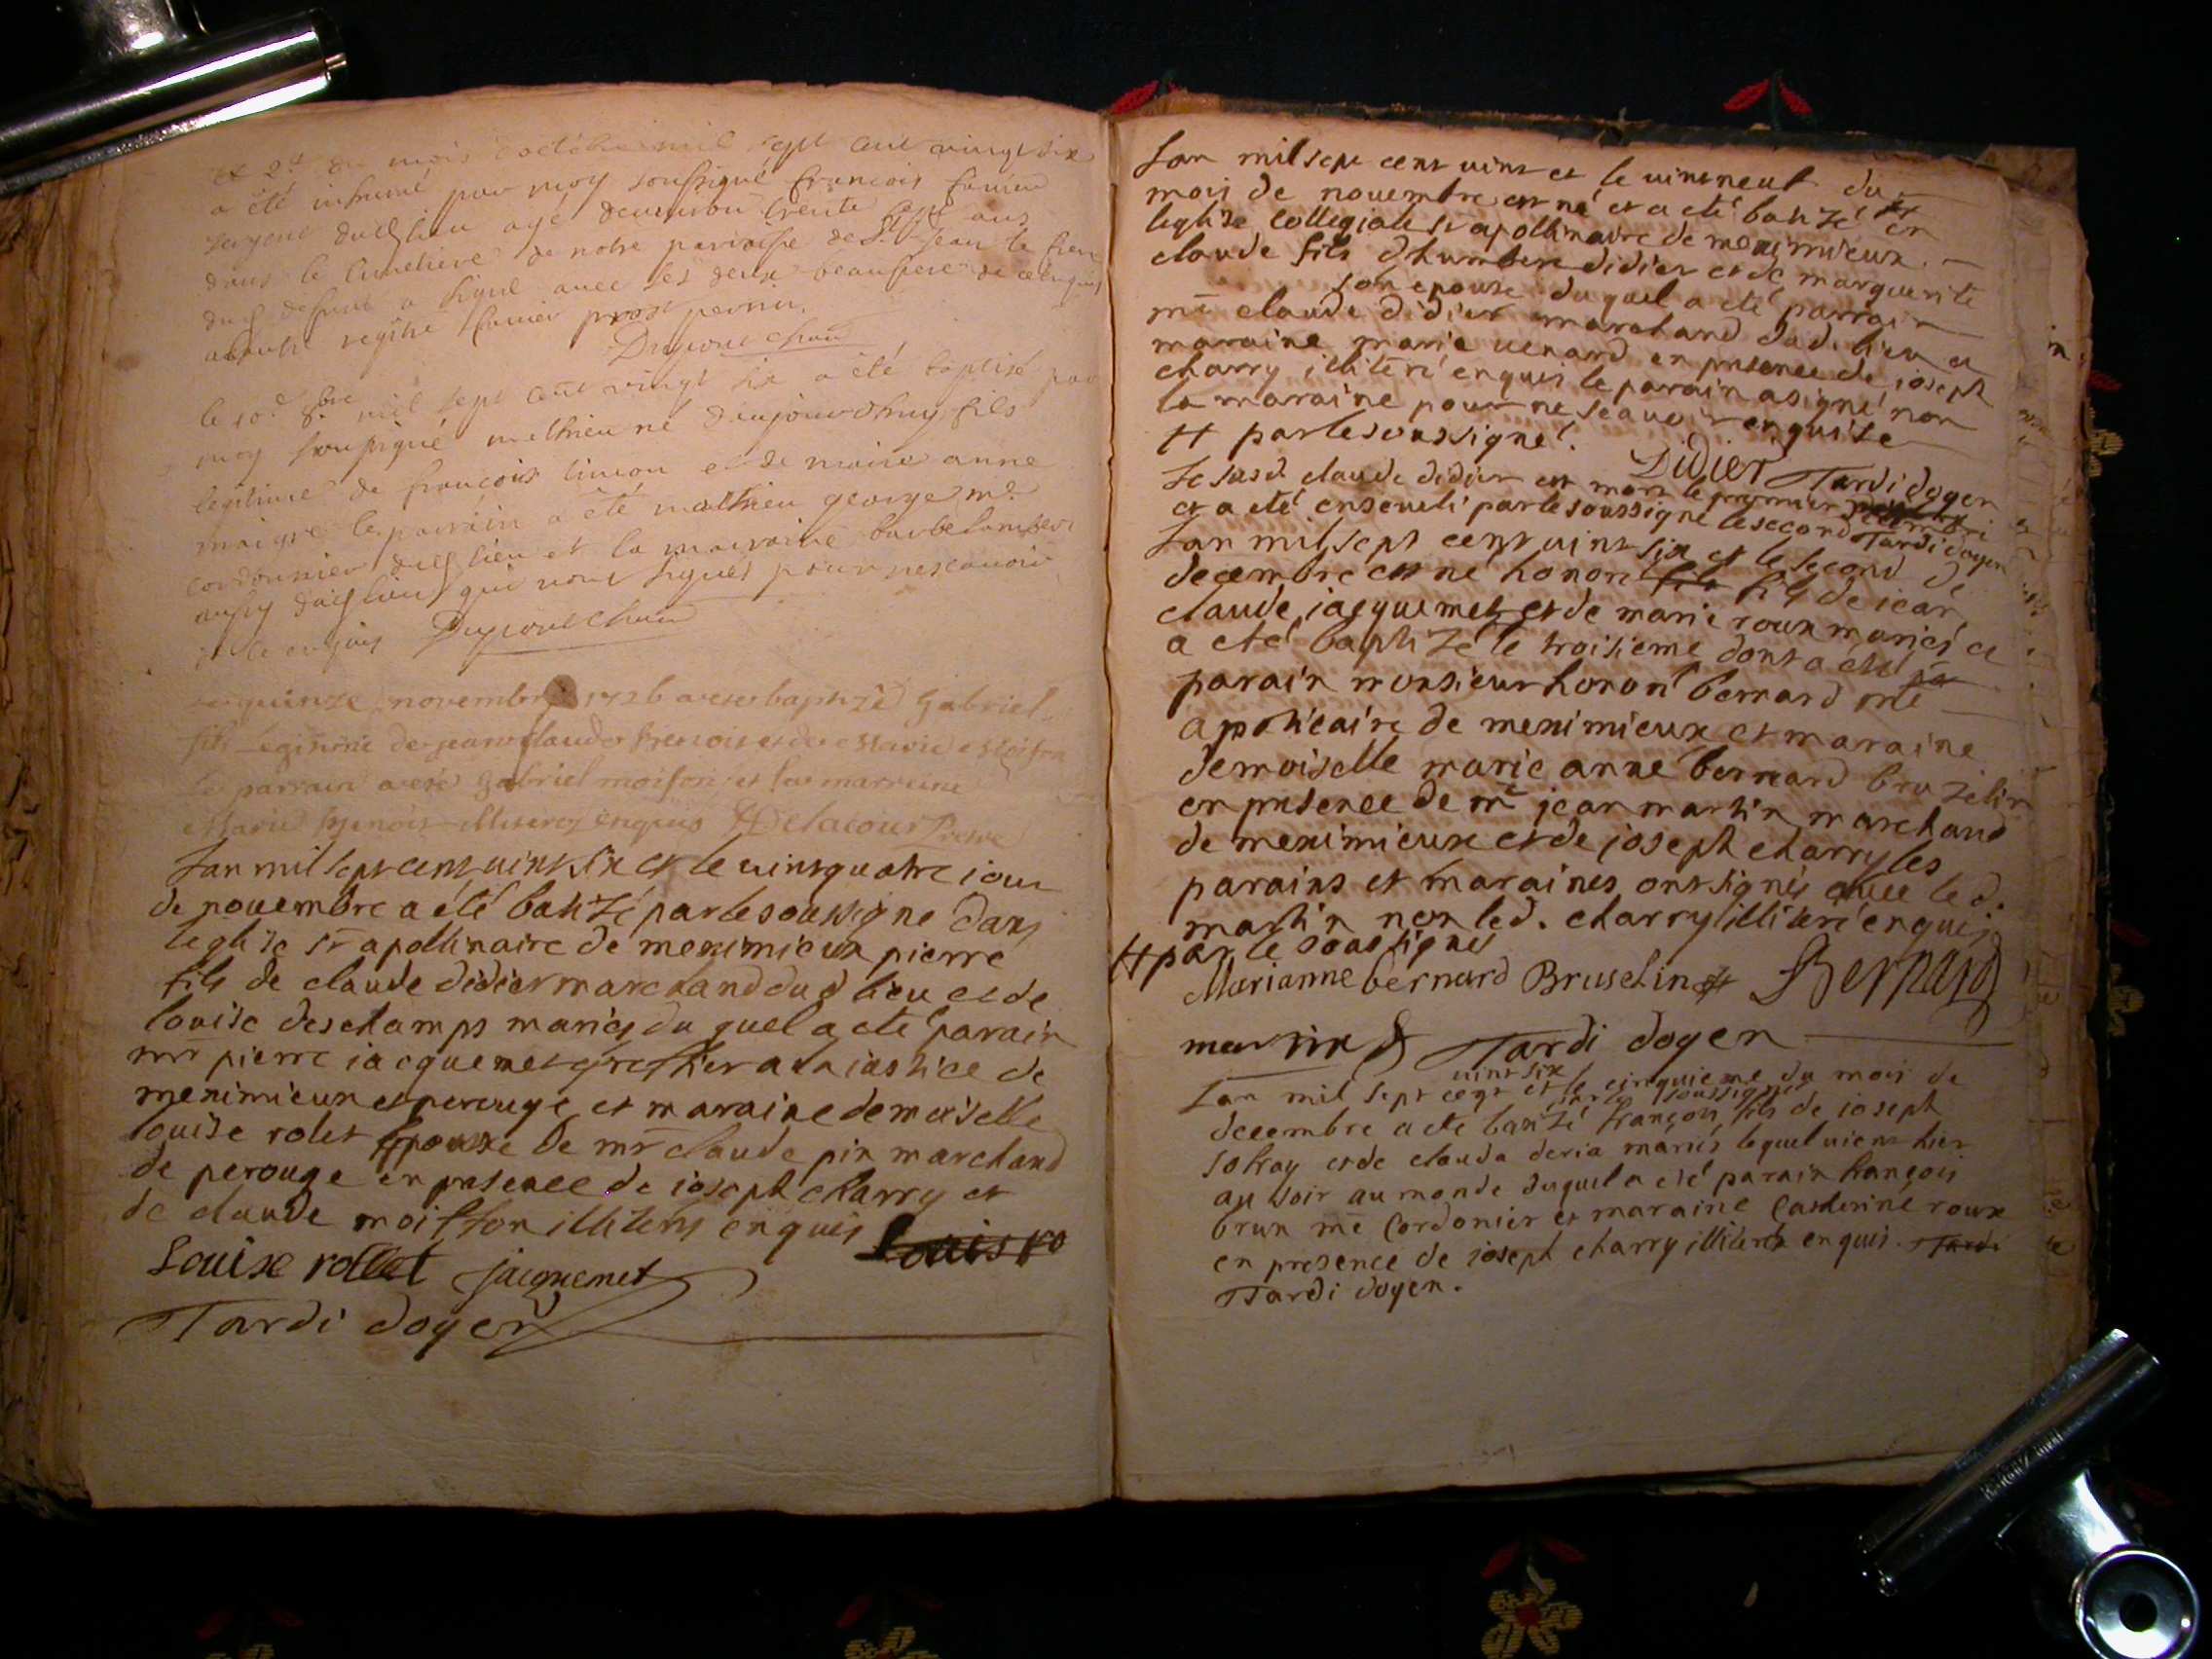 du mois doctobre mil sept cent vingt six
a été inhumé par moy soussigné francois
sergent dud lieu agé denviron trente sept ans
dans le cimetiere de notre paroisse de St Jean le frere
dud defunt a signé avec les deux beaufrere de
le 10e 8bre mil sept cent vingt six a été baptisé par
moy soussigné mathieu né daujourdhuy fils
legitime de francois limon et de marie anne
maigre le parrain a été mathieu george me
cordonnier dud lieu et la marraine
aussy dud lieu qui nont signés pour ne scavoir
quinze novembre 1726 a esté baptizé Gabriel
fils legitime de jean claude benoist et de Marie
le parrain a esté Gabriel moifson et la marreine
Marie benoist illiterez enquis Delacour
lan mil sept cent vint six et le vint quatre iour
de novembre a été batizé par le soussigne dans
leglize st apollinaire de meximieux pierre
fils de claude didier marchand dud lieu et de
louise deschamps mariés du quel a eté parain
mr pierre iacquemet greffier a la iustice de
meximieux et perouge et maraine demoiselle
louise rolet epouse de mr claude pin marchand
de perouge en presence de ioseph charry et
de claude moifson illiterés enquis louis ro
Louise rollet jacquemet
Tardi doyen
lan mil sept cent vint et le vint neuf du
mois de novembre est né et a eté batizé # en
leglize collegiale st apollinaire de meximieux
claude fils dhumbert didier et de marguerite
son epouse duquel a eté parrain
me claude didier marchand dud. lieu et
maraine marie venard en presence de ioseph
charry illiteré enquis le parain a signé non
la maraine pour ne scavoir enquise
# par le soussigné. Didier Tardi doyen
le susd claude didier est mort le premier
et a eté enseveli par le soussigne le second Tardi doyen
lan mil sept cent vint six et le second de
decembre est né honoré fils fils de iean
claude iacquemet et de marie roux mariés et
a eté baptizé le troisieme dont a eté pa
parain monsieur honoré bernard me
apoticaire de meximieux et maraine
demoiselle marie anne bernard bruzelin
en presence de mr jean martin marchand
de meximieux et de joseph charry les
parains et maraines ont signés avec le d.
martin non led. charry illiteré enquis
# par le soussignes
Marianne bernard Bruselin # Bernard
martin Tardi doyen
vint six
lan mil sept cent et le cinquieme du mois de
par le soussigné
decembre a eté batizé françois fils de ioseph
solvay et de clauda deria mariés lequel vient hier
au soir au monde duquel a eté parain françois
brun me cordonier et maraine Catherine roux
en presence de ioseph charry illiteré enquis. Tardi
Tardi doyen.